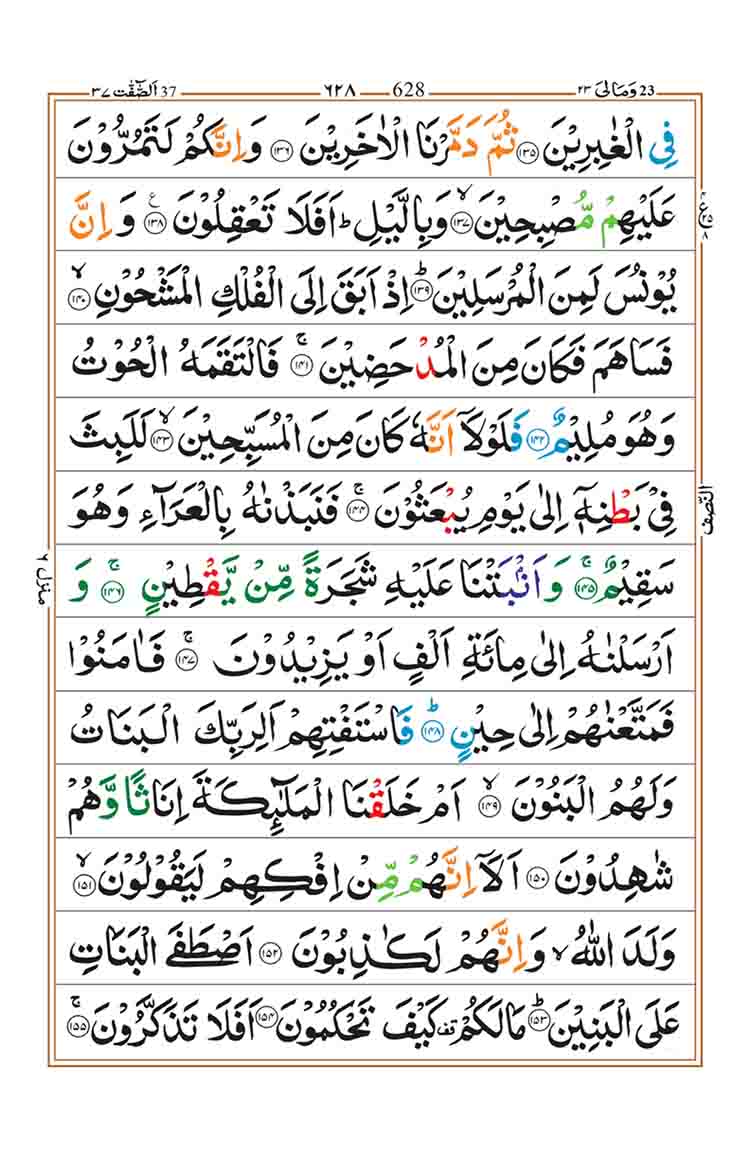 اَلصّٰٓفّٰت ٣٧ 37 ٦٢٨ 628 وَمَالِیَ ٢٣ 23
فِی الْغٰبِرِیْنَ ۝۱۳۵ ثُمَّ دَمَّرْنَا الْاٰخَرِیْنَ ۝۱۳۶ وَ اِنَّكُمْ لَتَمُرُّوْنَ
عَلَیْهِمْ مُّصْبِحِیْنَ ۝۱۳۷ۙ وَ بِالَّیْلِ ؕ اَفَلَا تَعْقِلُوْنَ ۝۱۳۸ع وَ اِنَّ
یُوْنُسَ لَمِنَ الْمُرْسَلِیْنَ ۝۱۳۹ؕ اِذْ اَبَقَ اِلَی الْفُلْكِ الْمَشْحُوْنِ ۝۱۴۰ۙ
فَسَاهَمَ فَكَانَ مِنَ الْمُدْحَضِیْنَ ۝۱۴۱ۚ فَالْتَقَمَهُ الْحُوْتُ
وَ هُوَ مُلِیْمٌ ۝۱۴۲ فَلَوْلَاۤ اَنَّهٗ كَانَ مِنَ الْمُسَبِّحِیْنَ ۝۱۴۳ۙ لَلَبِثَ
فِیْ بَطْنِهٖۤ اِلٰی یَوْمِ یُبْعَثُوْنَ ۝۱۴۴ۚ فَنَبَذْنٰهُ بِالْعَرَآءِ وَ هُوَ
النّصف
سَقِیْمٌ ۝۱۴۵ۚ وَ اَنْۢبَتْنَا عَلَیْهِ شَجَرَةً مِّنْ یَّقْطِیْنٍ ۝۱۴۶ۚ وَ
منزل ٦
اَرْسَلْنٰهُ اِلٰی مِائَةِ اَلْفٍ اَوْ یَزِیْدُوْنَ ۝۱۴۷ۚ فَاٰمَنُوْا
فَمَتَّعْنٰهُمْ اِلٰی حِیْنٍ ۝۱۴۸ؕ فَاسْتَفْتِهِمْ اَلِرَبِّكَ الْبَنَاتُ
وَ لَهُمُ الْبَنُوْنَ ۝۱۴۹ۙ اَمْ خَلَقْنَا الْمَلٰٓىِٕكَةَ اِنَاثًا وَّ هُمْ
شٰهِدُوْنَ ۝۱۵۰ اَلَاۤ اِنَّهُمْ مِّنْ اِفْكِهِمْ لَیَقُوْلُوْنَ ۝۱۵۱ۙ
وَلَدَ اللّٰهُ ۙ وَ اِنَّهُمْ لَكٰذِبُوْنَ ۝۱۵۲ اَصْطَفَی الْبَنَاتِ
عَلَی الْبَنِیْنَ ۝۱۵۳ؕ مَا لَكُمْ قف كَیْفَ تَحْكُمُوْنَ ۝۱۵۴ اَفَلَا تَذَكَّرُوْنَ ۝۱۵۵ۚ